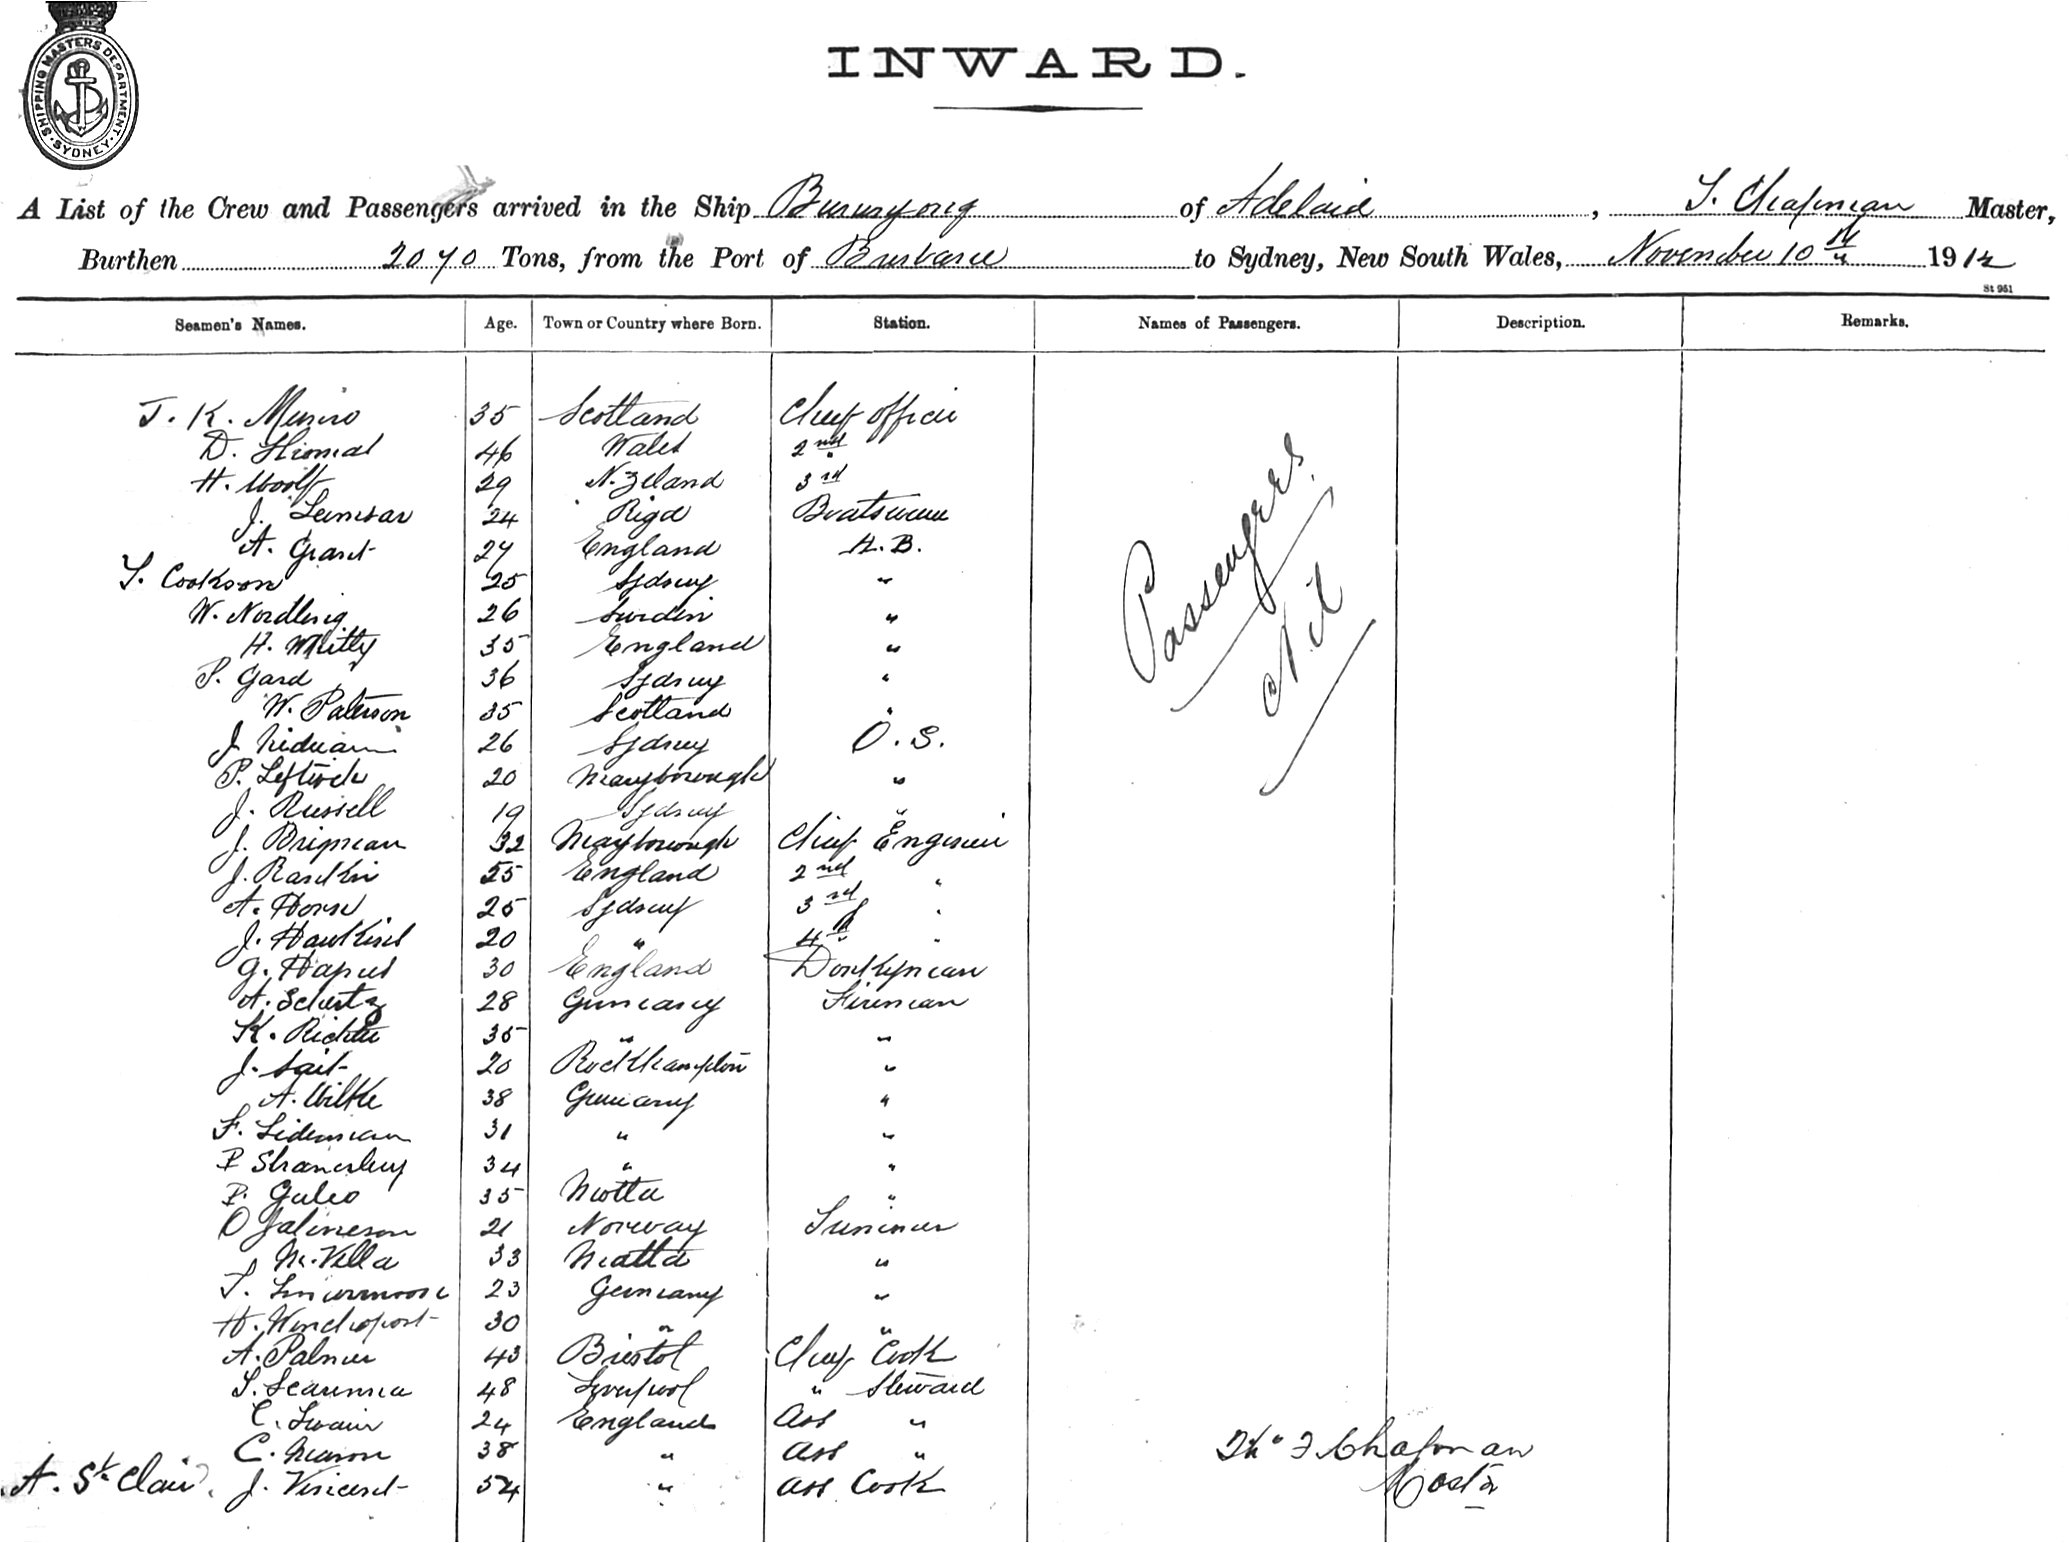 SHIPPING MASTERS DEPARTMENT
SYDNEY
INWARD.
A List of the Crew and Passengers arrived in the Ship Burwyong of Adelaid, T. Chapman Master,
Burthen 2070 Tons, from the Port of Brisbane to Sydney, New South Wales, November 10th 1912
St 961
Seamen's Names. Age. Town or Country where Born. Station. Names of Passengers. Description. Remarks.
J. K. Munro 35 Scotland Chief Officer
D. Thomas 46 Wales 2nd "
H. Woolf 29 N. Zeland 3rd
J. 24 Riga Boatswain
A. Grant 27 England A. B.
T. Cookson 25 Sydney "
W. Nordling 26 Sweden "
H. Whitty 35 England "
P. Gard 36 Sydney "
W. Paterson 35 Scotland "
J. 26 Sydney O. S.
P. Leftwich 20 Maryborough "
J. Russell 19 Sydney "
J. 32 Maryborough Chief Engineer
J. Rankin 25 England 2nd "
A. Horne 25 Sydney 3rd "
J. Hawkins 20 " 4th "
G. 30 England Donkyman
A. Schultz 28 Germany Fireman
K. Richter 35 " "
J. Sait 20 Rockhampton "
A. Wilke 38 Germany "
F. Lideman 31 " "
P 34 " "
P. Galeo 35 Motta "
O 21 Norway Trimmer
M. Vella 33 Malta "
T. 23 Germany "
H. 30 " "
A. Palmer 43 Bristol Chief Cook
T. 48 Liverpool " Steward
C. Swain 24 England Ass "
C. Mason 38 " Ass "
A. St. Clair. J. Vincent 54 " Ass Cook
Passengers.
Nil
Chapman
Master